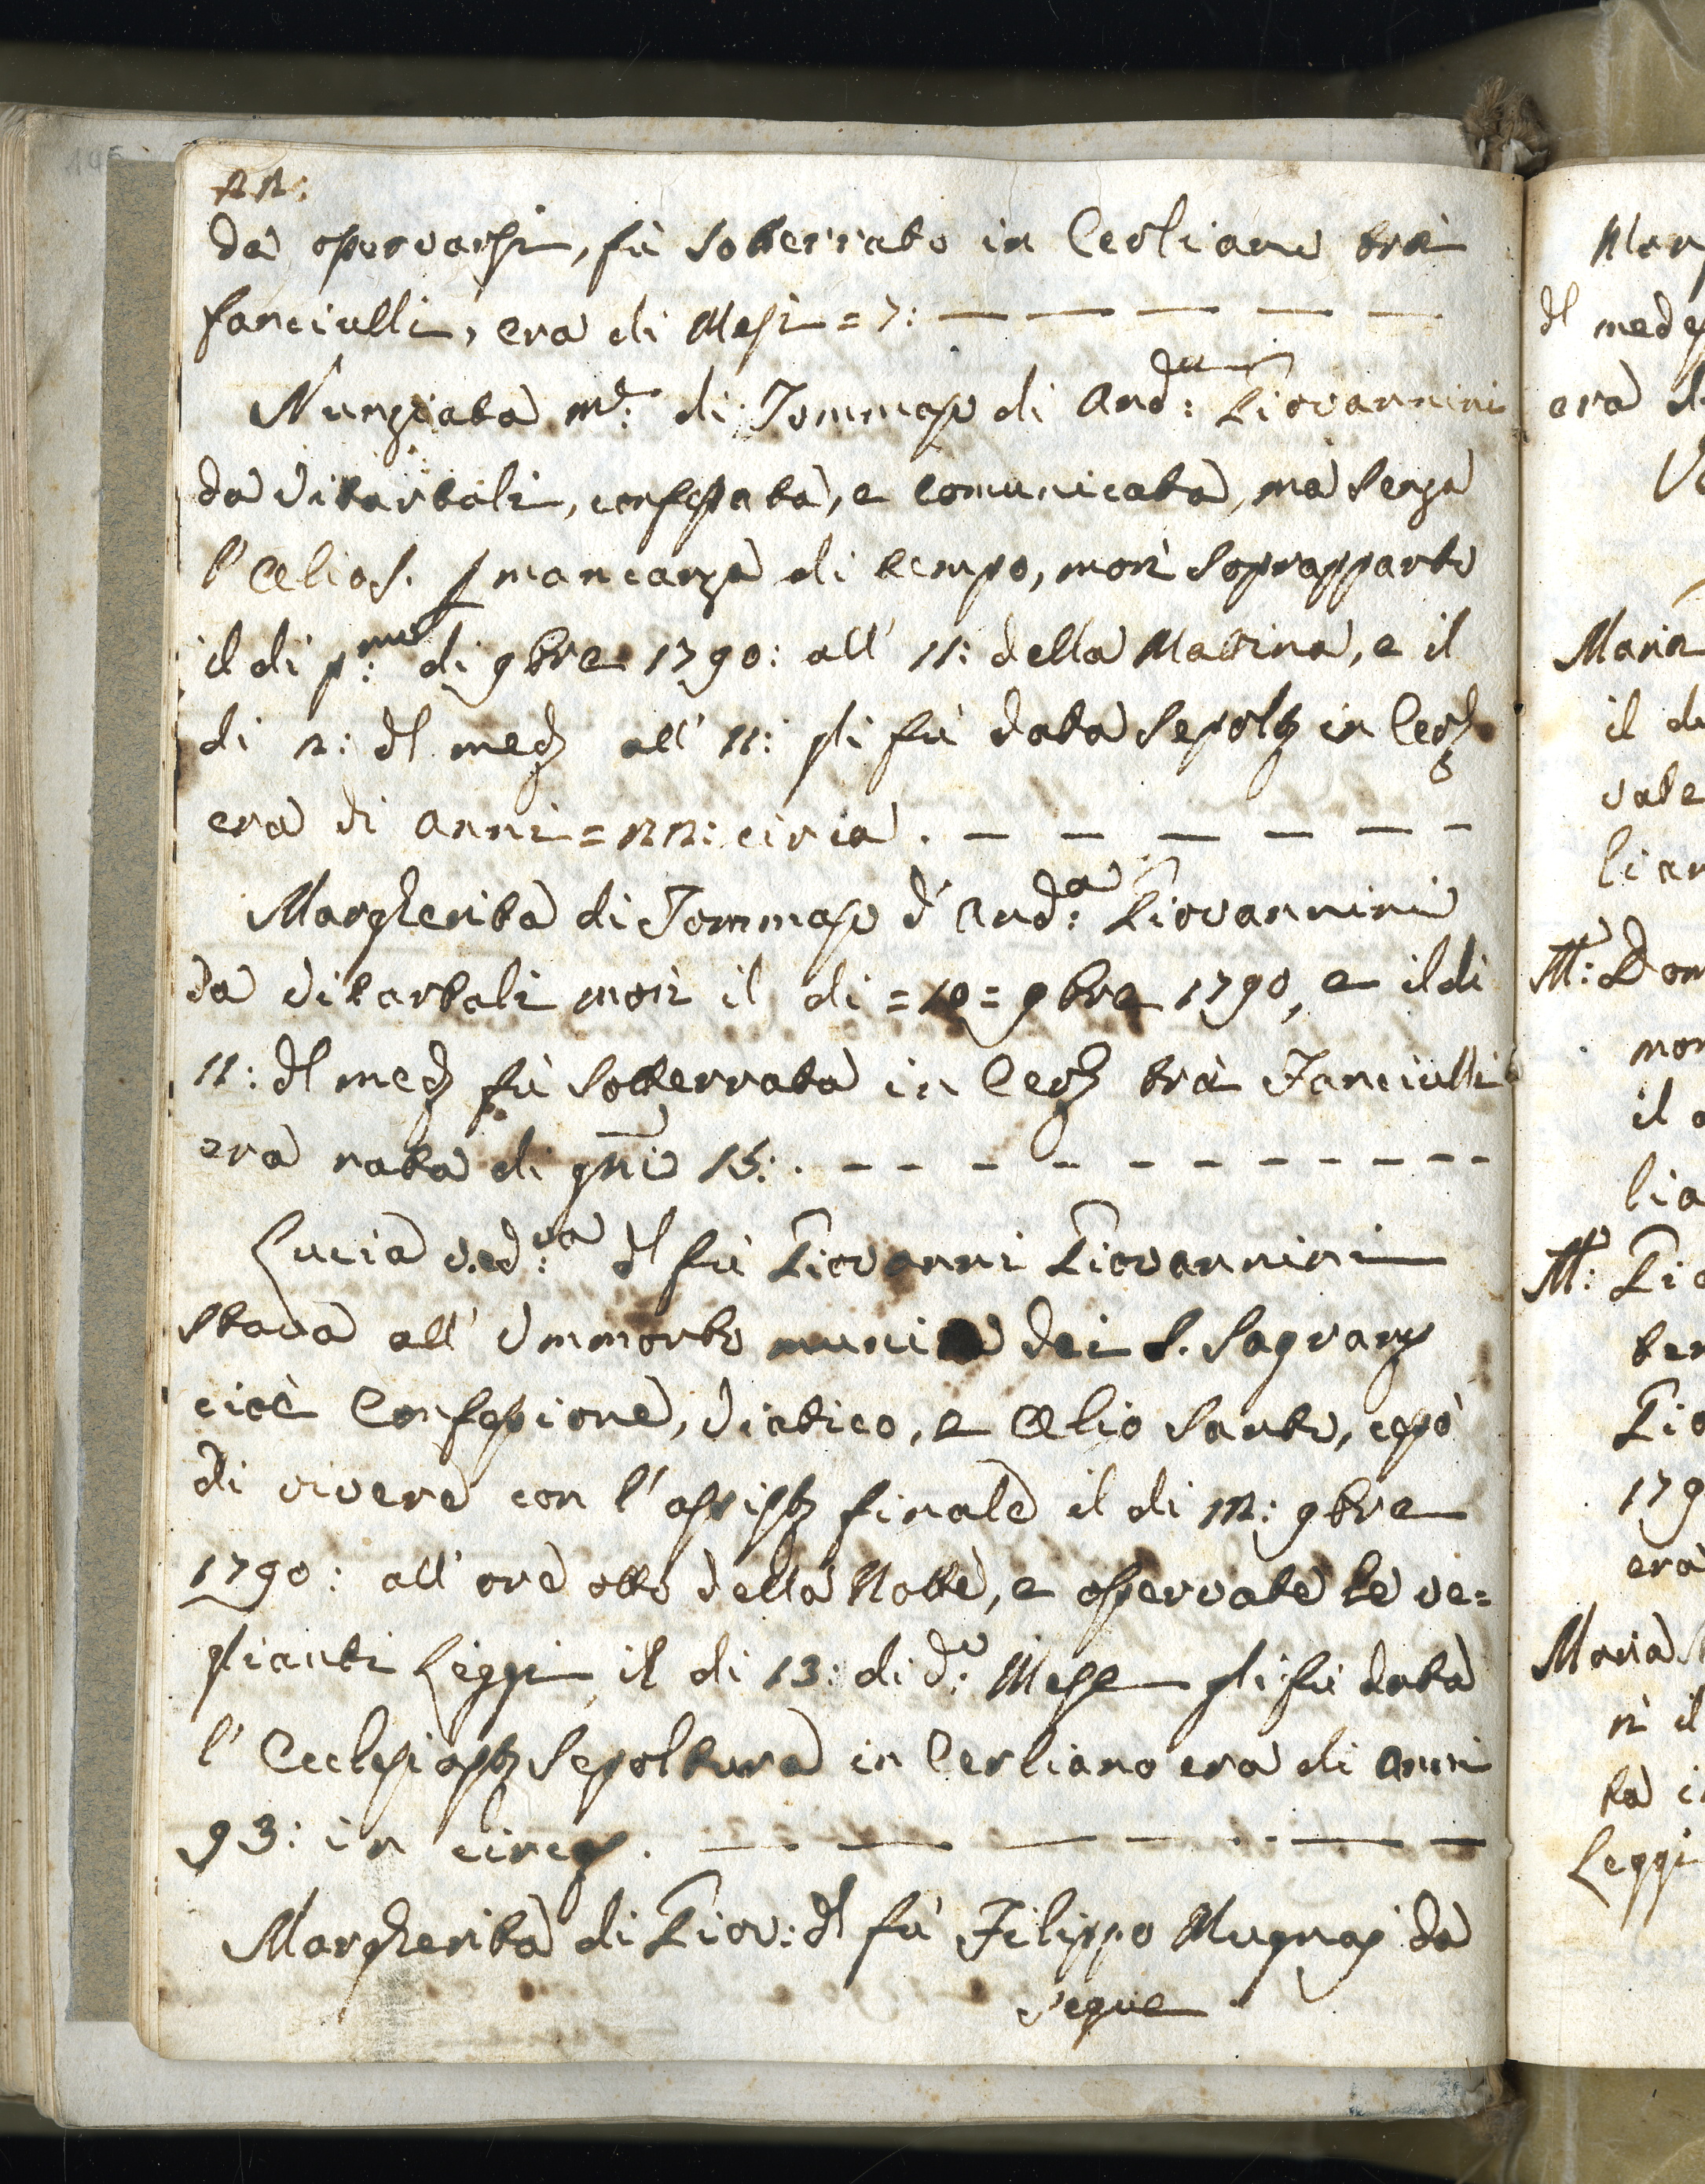 22:
da osservarsi, fù sotterrato in Cerliano trà
fanciulli, era di Mesi = 7: — — — — —
Nunziata m.e di Tommaso di And:a Giovannini
da Vitartali, confessata, e comunicata, ma senza
l'Olio S. p mancanza di tempo, morì soprapparto
il di p:mo di 9bre 1790: all' 11: della Mattina, e il
di 2: dl med all' 11: gli fù data Sepolt in Cerl
era di anni = 22: circa. — — — — — —
Margherita di Tommaso d' And:a Giovannini
da Vitartali morì il di = 10 = 9bre 1790, e il di
11: dl med fù sotterrata in Cerl trà Fanciulli
era nata di gni 15: . - - - - - - - - - -
Lucia ved:va dl fù Giovanni Giovannini
stava all' Ommorto muni dei S. Sagram
cioè Confessione, Viatico, e Olio Santo, cessò
di vivere con l'assist finale il di 12: 9bre
1790: all' ore otto della Notte, e osservate le ve=
glianti Leggi, il di 13: di d:o Mese gli fù data
l' Ecclesiast Sepoltura in Cerliano era di anni
93: in circa. — — — — — —
Margherita di Giov: dl fù Filippo Mugnai da
segue
Mar
dl medes
era d
Maria
il d
vale
lian
M: Dom
mor
il
lia
M: Gio
ter
Gio
179
era
Maria
rì il
ta i
Leggi